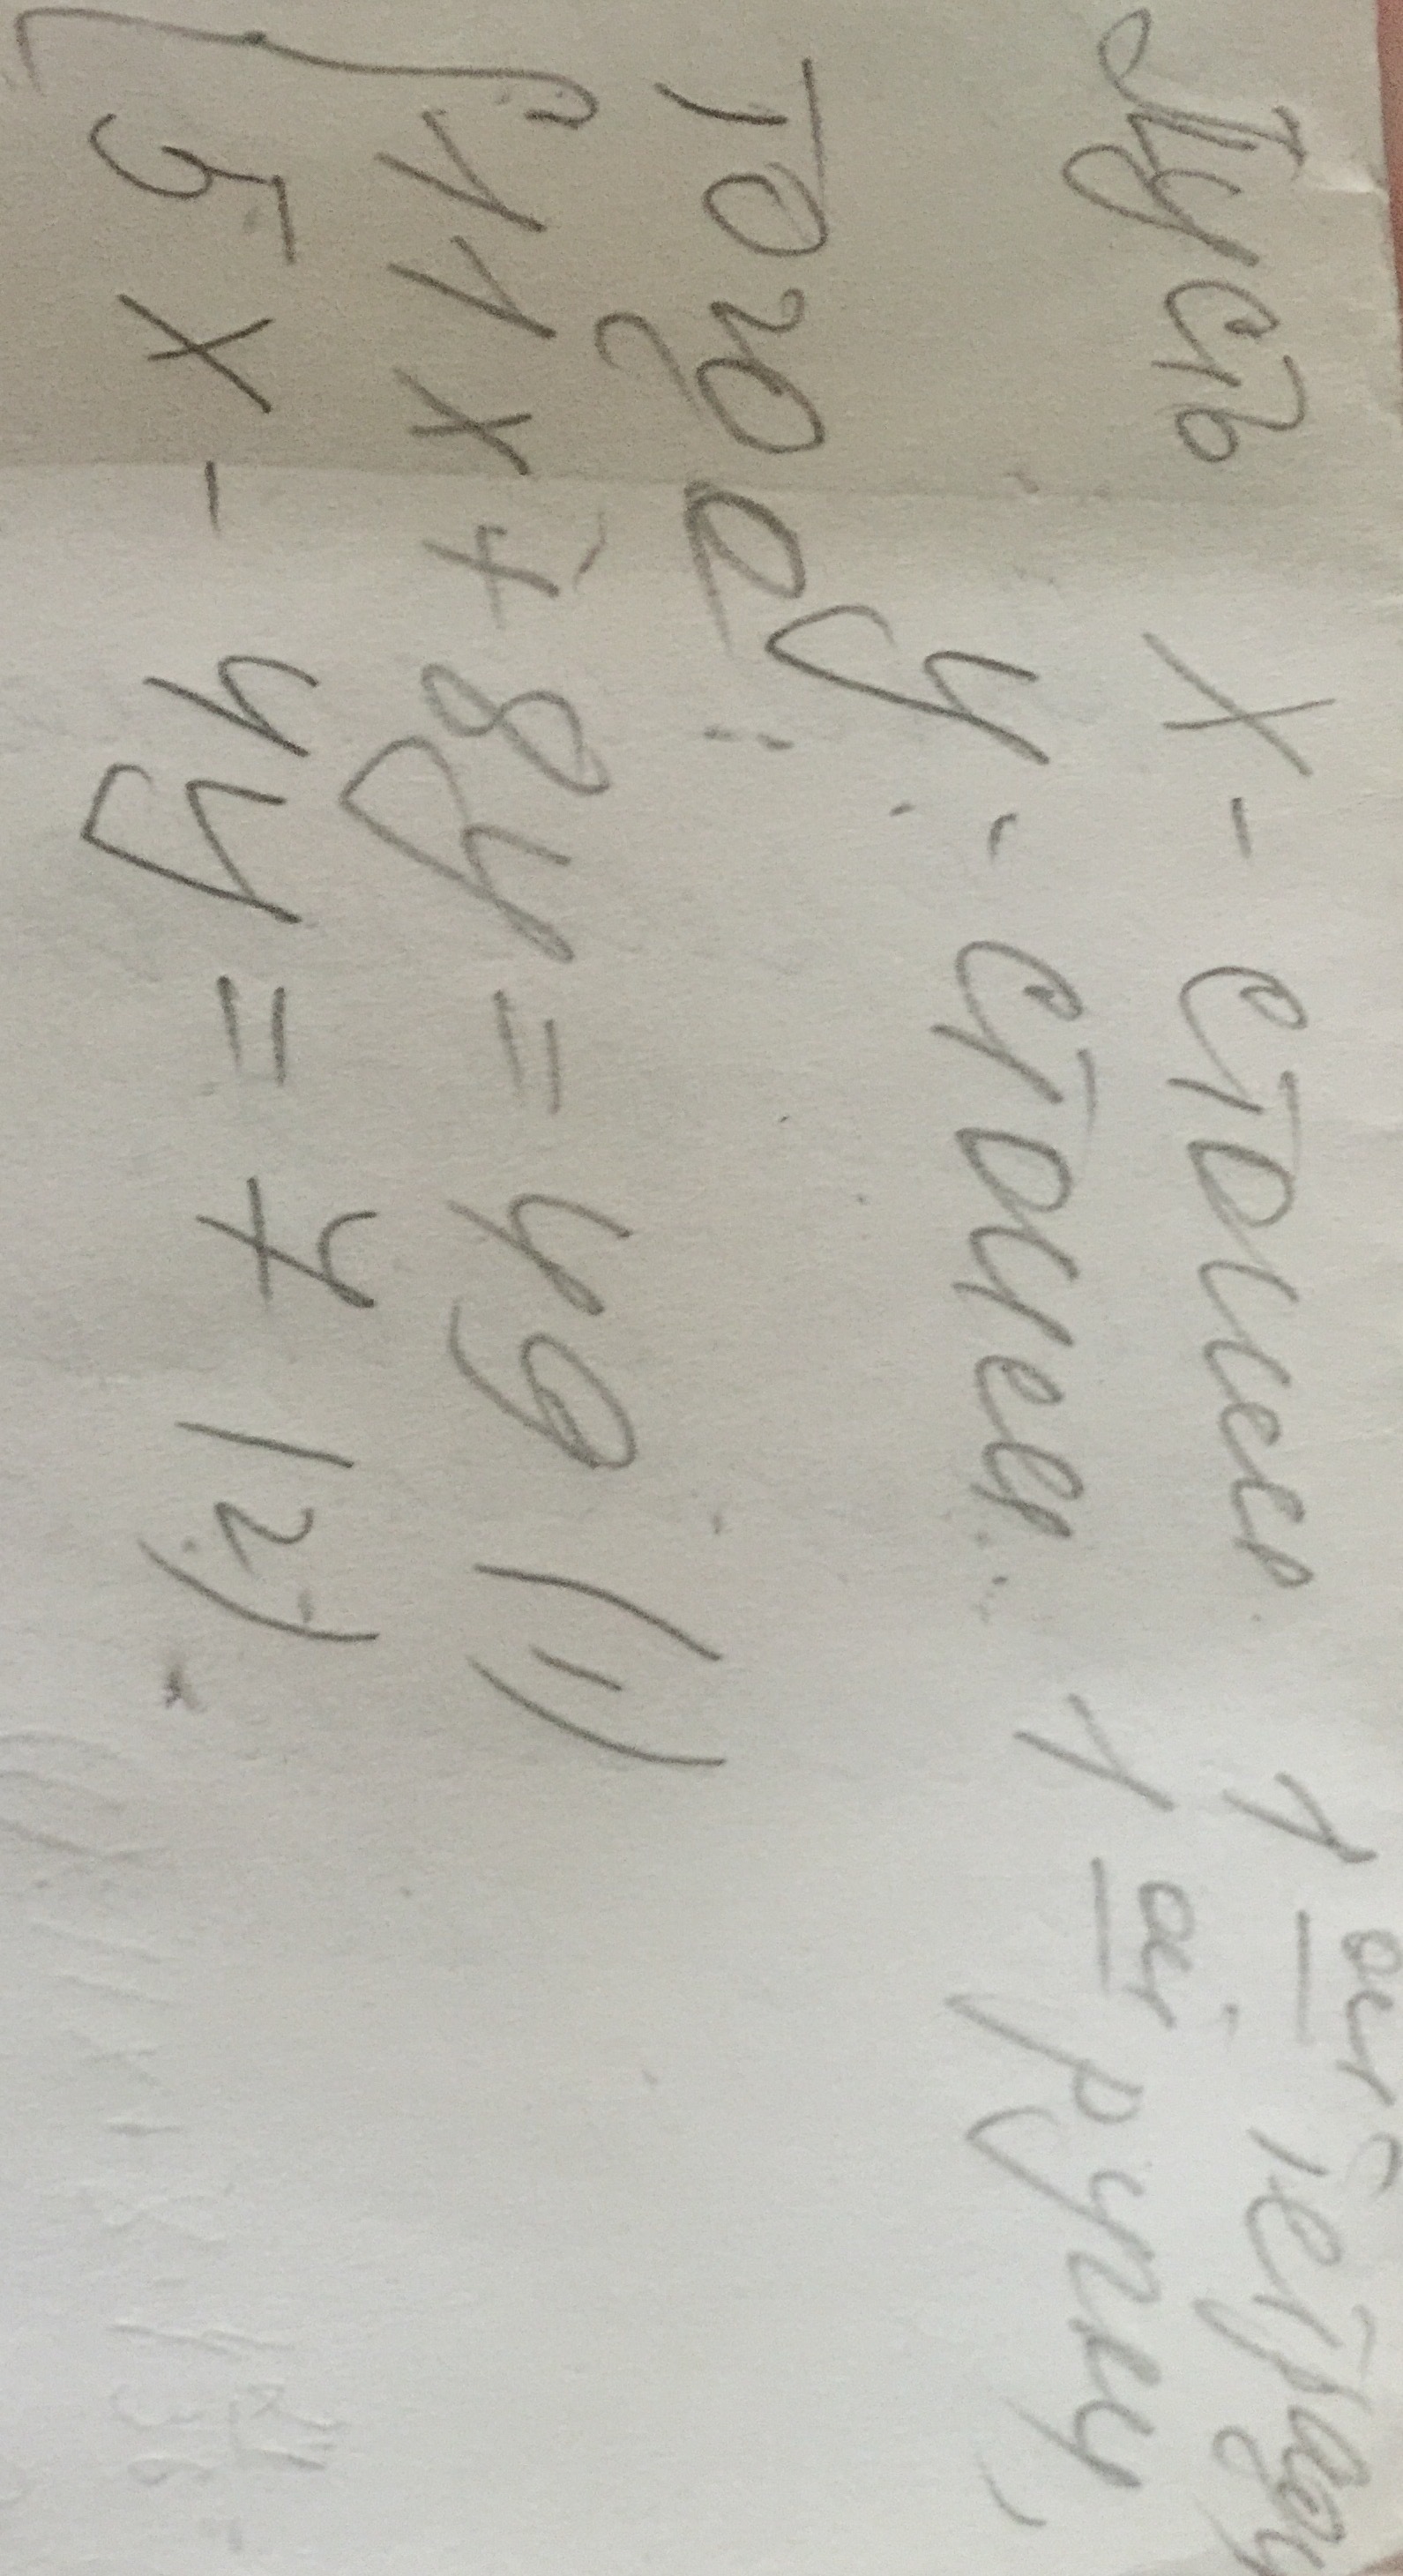 Пусть x - стоим. 1ой тетради
y - стоим. 1ой ручки,
Тогда:
11x + 8y = 49 (1)
5x - 4y = 7 (2)